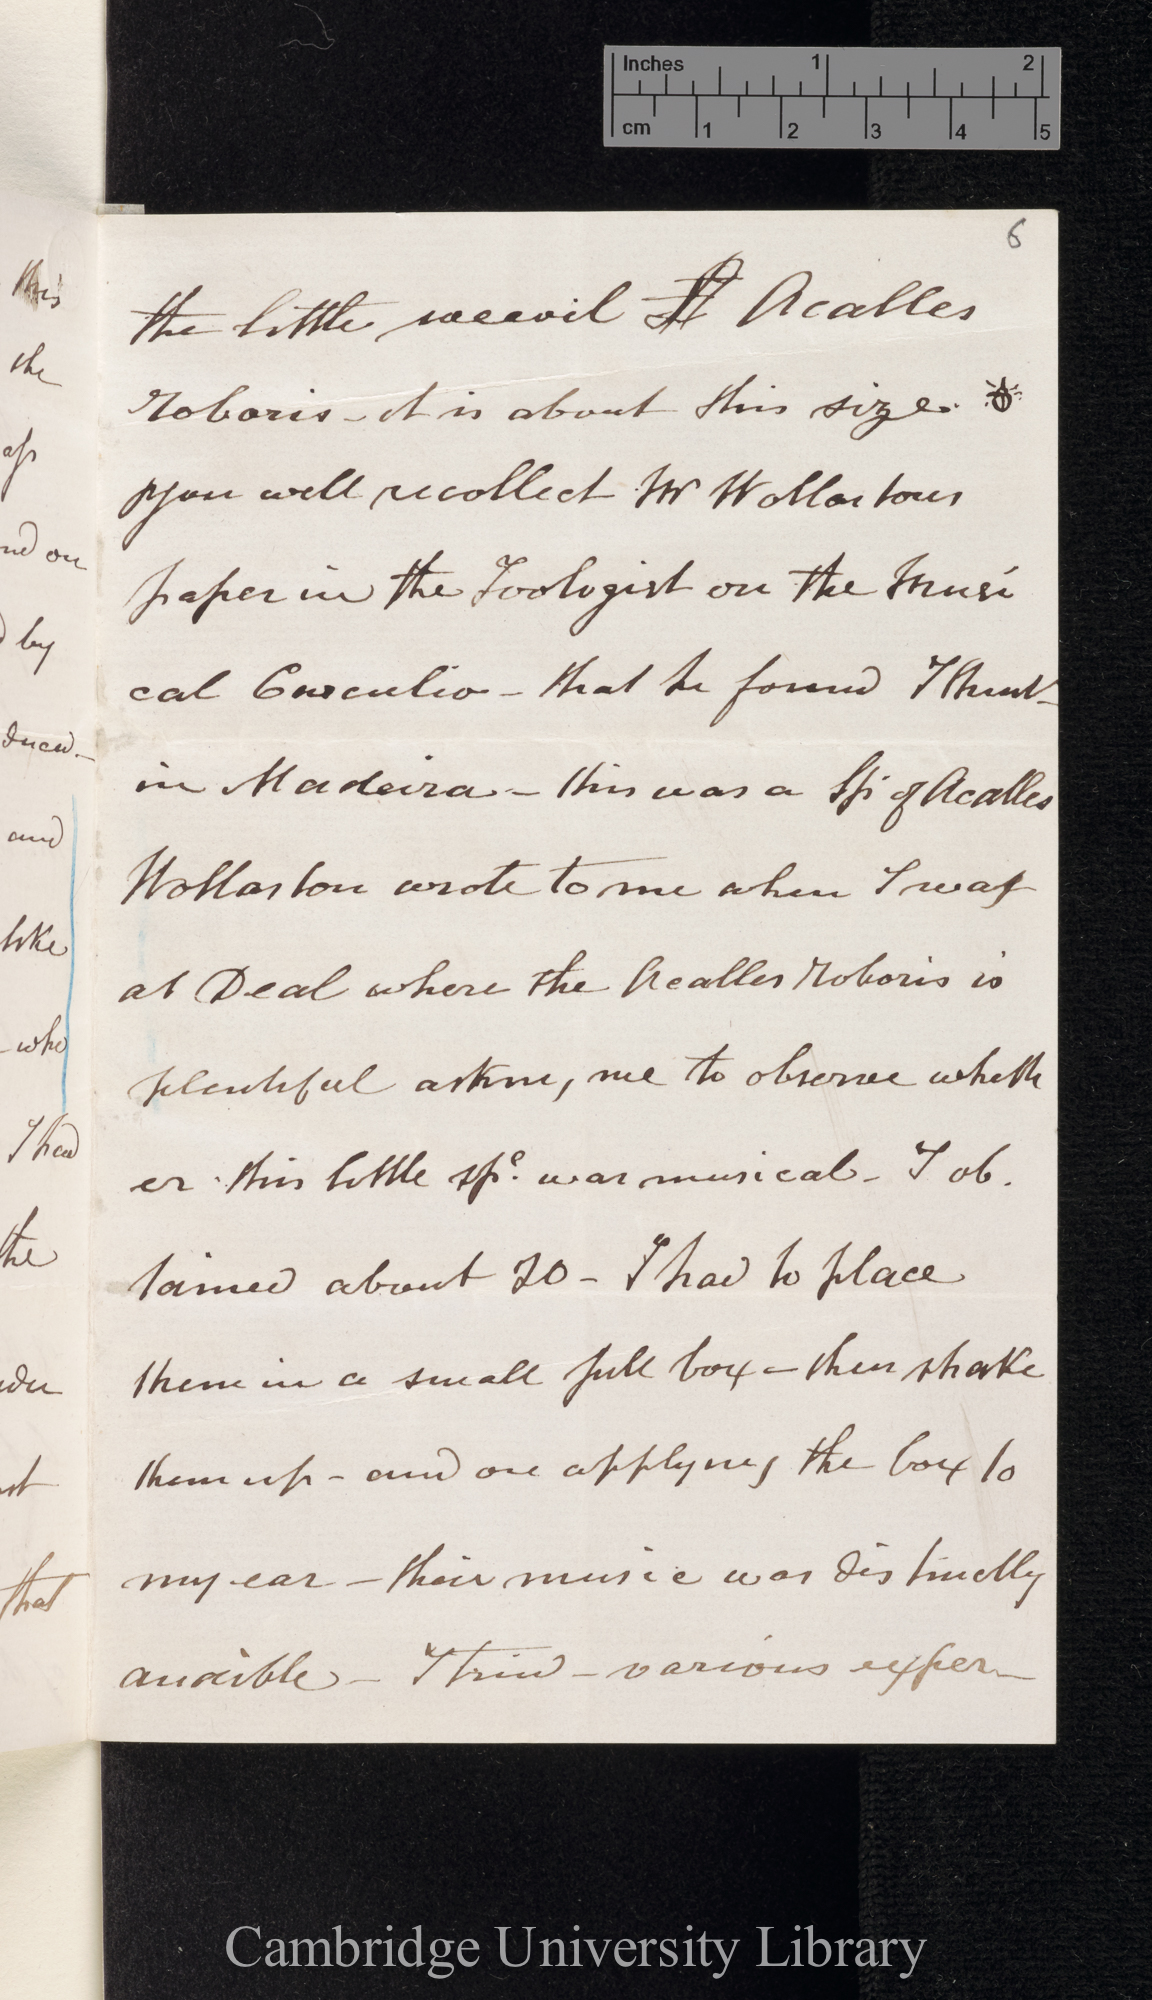 Inches 1 2
cm 1 2 3 4 5
6
the little weevil Acalles
Roboris – it is about this size.
you well recollect Mr Wollastons
paper in the Zoologist on the Musi
cal Curculio – that he found I think
in Madeira – this was a Sp: of Acalles
Wollaston wrote to me when I was
at Deal where the Acalles Roboris is
plentiful asking me to observe wheth
er this little sps. was musical – I ob.
tained about 20 – I had to place
them in a small pill box – then shake
them up – and on applying the box to
my ear – their music was distinctly
audible – I tried – various exper–
this
the
nd on
by
and
like
– who
I had
the
that
Cambridge University Library